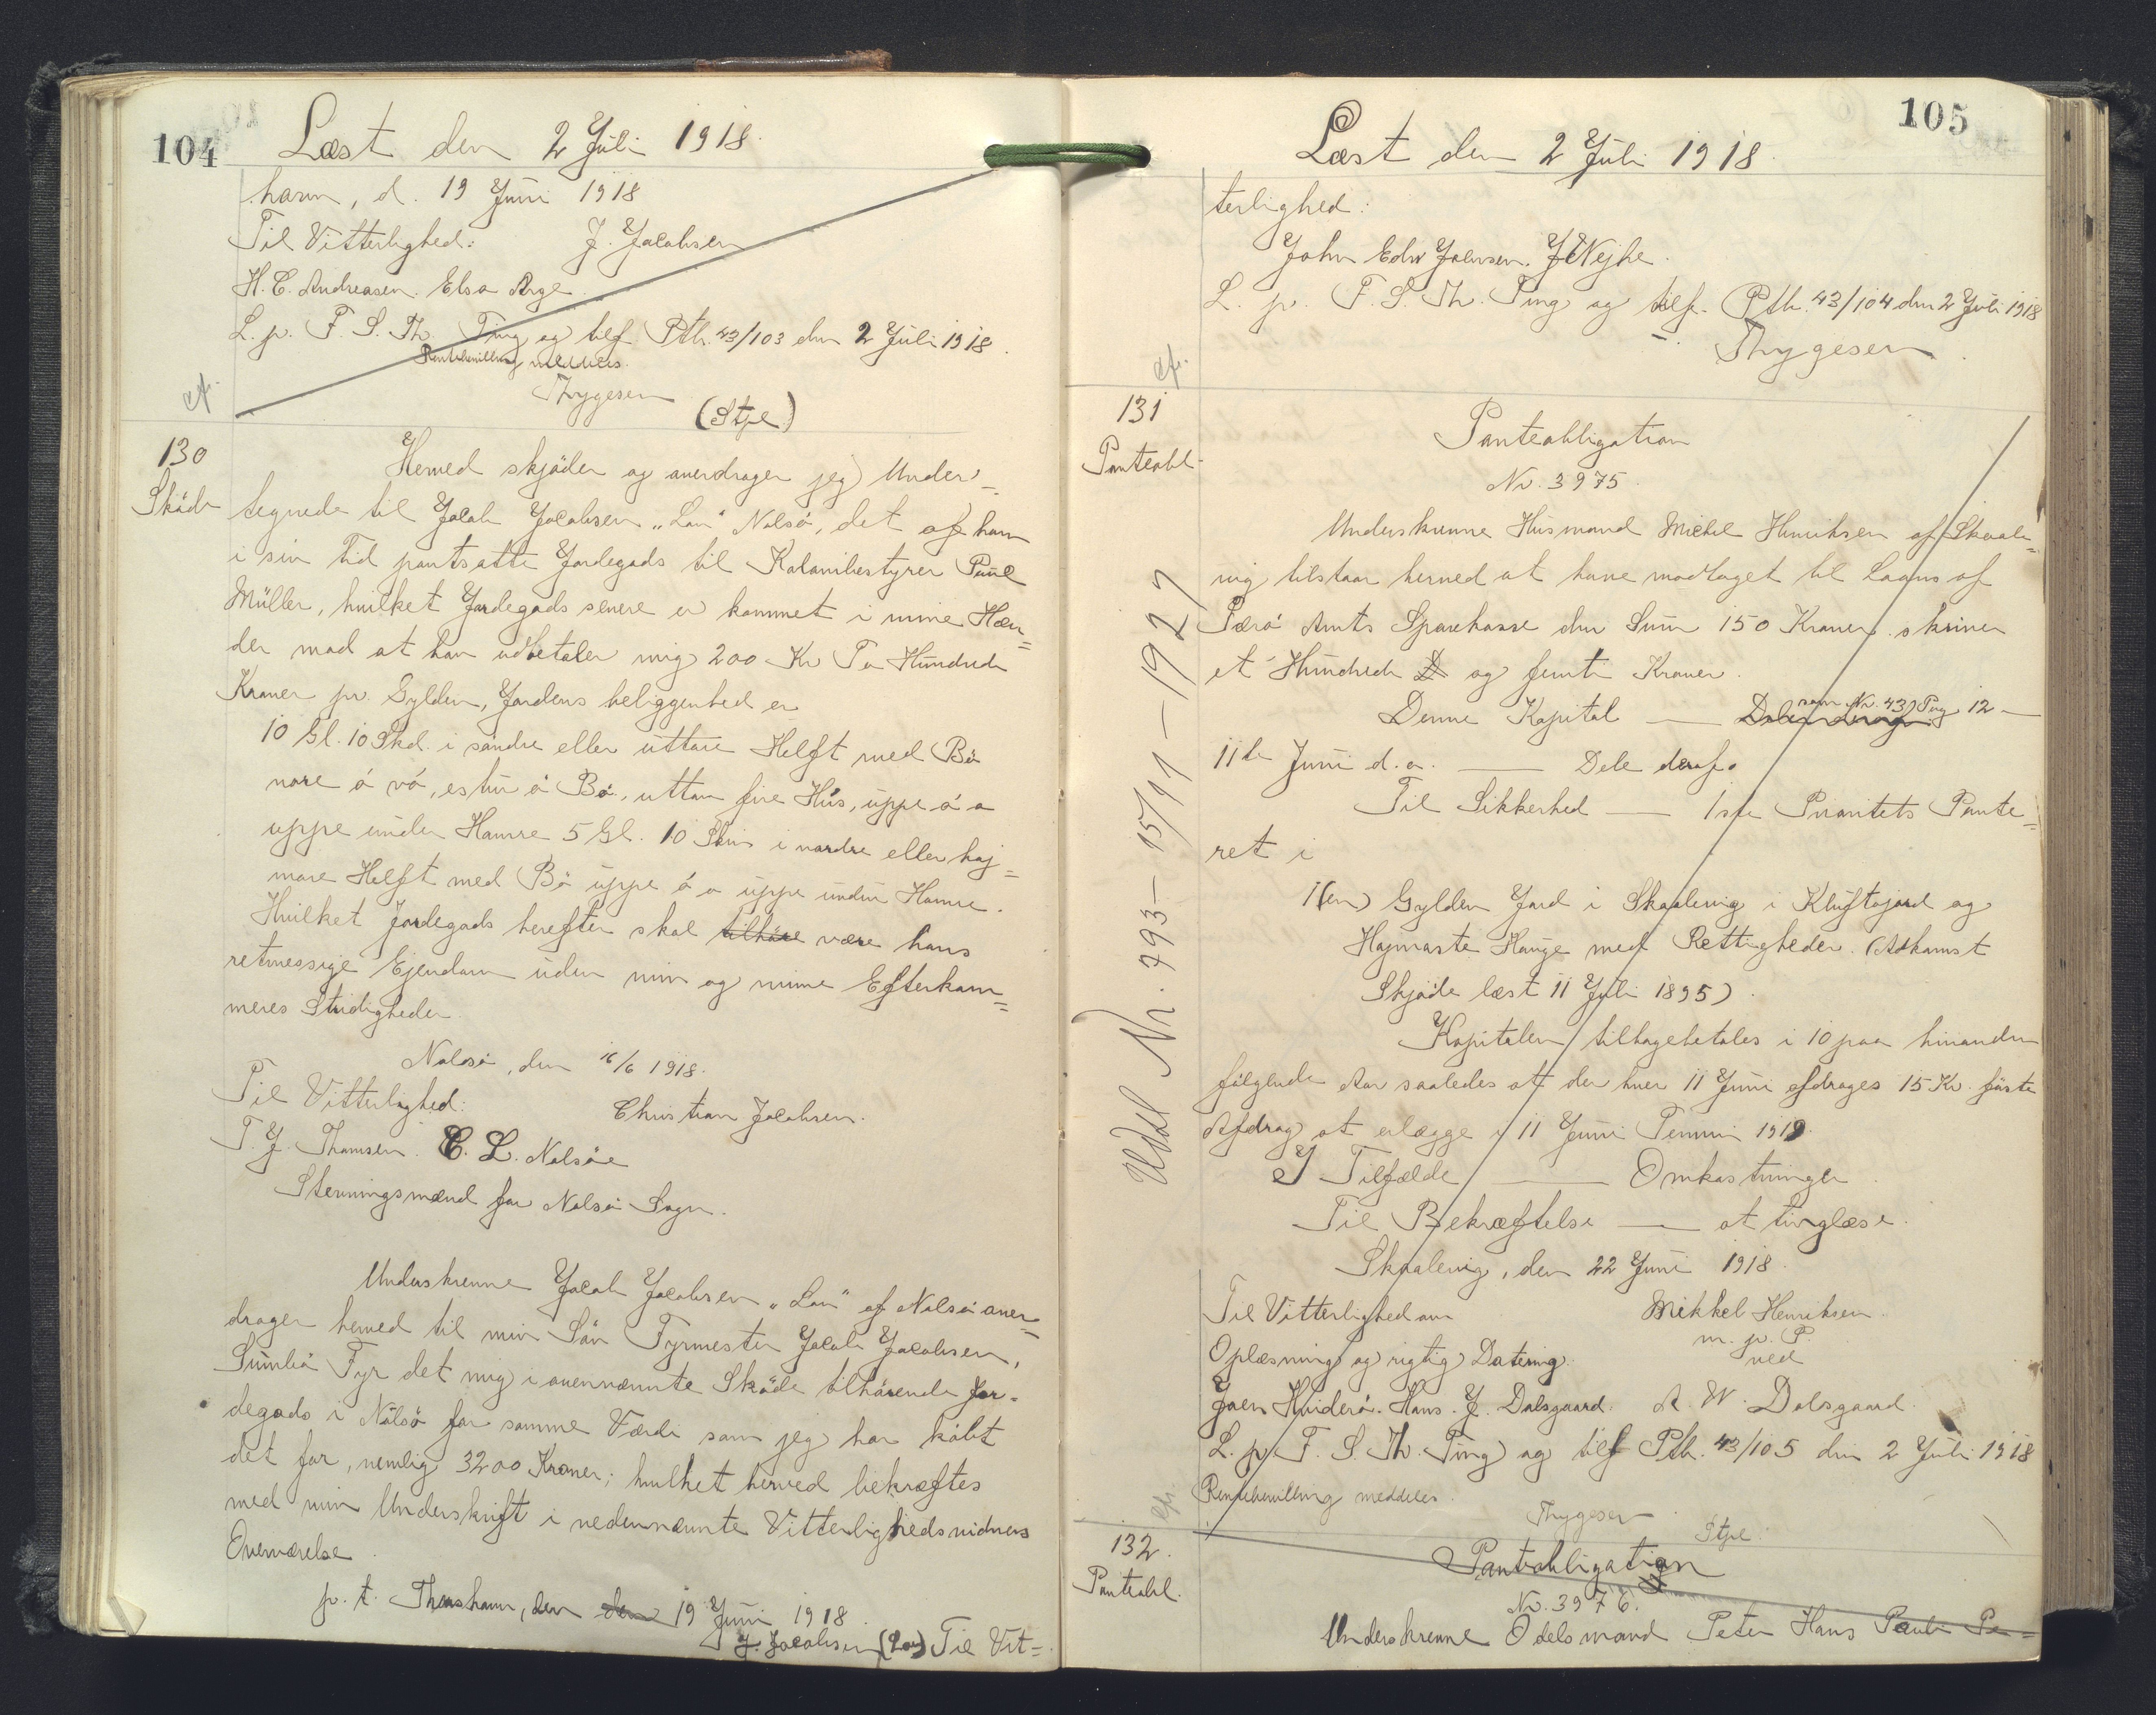 104
Læst den 2 Juli 1918.
havn, d. 19 Juni 1918
Til Vitterlighed: J. Jacobsen
H. C. Andreasen. Elsa Arge.
L. p. F. S. Th. Ting og tilf. Ptb. 43/103 den 2 Juli 1918.
Rentebevilling meddeles.
Thygesen
(Stpl)
cfr.
130
Skøde
Herved skjøder og overdrager jeg Under-
tegnede til Jacob Jacobsen „Lon“ Nolsø, det af ham
i sin Tid pantsatte Jordegods til Kolonibestyrer Poul
Müller, hvilket Jordegods senere er kommet i mine Hæn=
der mod at han udbetaler mig 200 Kr To Hundrede
Kroner pr. Gylden, Jordens beliggenhed er
10 Gl. 10 Skd. i søndre eller uttare Helft med Bø
nore á vó, estur á Bø, uttan fire Hus, uppe á o
uppe under Hamre 5 Gl. 10 Skins i nordre eller haj=
mare Helft med Bø uppe á o uppe under Hamre.
Hvilket Jordegods herefter skal tilhøre være hans
retmessige Ejendom uden min og mine Efterkom=
meres Stridigheder.
Nolsø, den 16/6 1918.
Til Vitterlighed: Christian Jacobsen.
T. J. Thomsen. C. L. Nolsøe
Stevningsmænd for Nolsø Sogn.
Underskrevne Jacob Jacobsen „Lon“ af Nolsø over=
drager herved til min Søn Fyrmester Jacob Jacobsen,
Sumbø Fyr det mig i ovennævnte Skøde tilhørende Jor-
degods i Nolsø for samme Værdi som jeg har købt
det for, nemlig 3200 Kroner; hvilket herved bekræftes
med min Underskrift i nedennævnte Vitterlighedsvidners
Overværelse.
p. t. Thorshavn, den den 19 Juni 1918.
J. Jacobsen (Lon) Til Vit=
105
Læst den 2 Juli 1918.
terlighed:
John Edw Joensen. J Nejhe.
L. p. F. S. Th. Ting og tilf. Ptb. 43/104 den 2 Juli 1918
Thygesen.
cfr.
131
Panteobl.
Udsl Nr. 793 – 15/11 – 1927
Panteobligation
Nr. 3975.
Underskrevne Husmand Mickel Henriksen af Skaale=
vig tilstaar herved at have modtaget til Laans af
Færø Amts Sparekasse den Sum 150 Kroner skriver
et Hundrede og femti Kroner.
Denne Kapital — som Nr. 43 Pag 12 —
11te Juni d. a. — Dele deraf.
Til Sikkerhed — 1ste Prioritets Pante=
ret i
1 (en) Gylden Jord i Skaalevig i Kluftajord og
Hajmaste Hauge med Rettigheder. (Adkomst
Skjøde læst 11 Juli 1895).
Kapitalen tilbagebetales i 10 paa hinanden
følgende Aar saaledes at der hver 11 Juni afdrages 15 Kr. første
Afdrag at erlægge i 11 Juni Termin 1919.
I Tilfælde — Omkostninger.
Til Bekræftelse — at tinglæse.
Skaalevig, den 22 Juni 1918.
Til Vitterlighed om Mikkel Henriksen.
m. p. P.
Oplæsning og rigtig Datering. ved
Joen Hviderø. Hans. J. Dalsgaard. A. W. Dalsgaard.
L. p. F. S. Th. Ting og tilf Ptb. 43/105 den 2 Juli 1918
Rentebevilling meddeles.
Thygesen
Stpl.
cfr.
132.
Panteobl.
Panteobligation
Nr. 3976.
Underskrevne Odelsmand Peter Hans Pauli Pe=